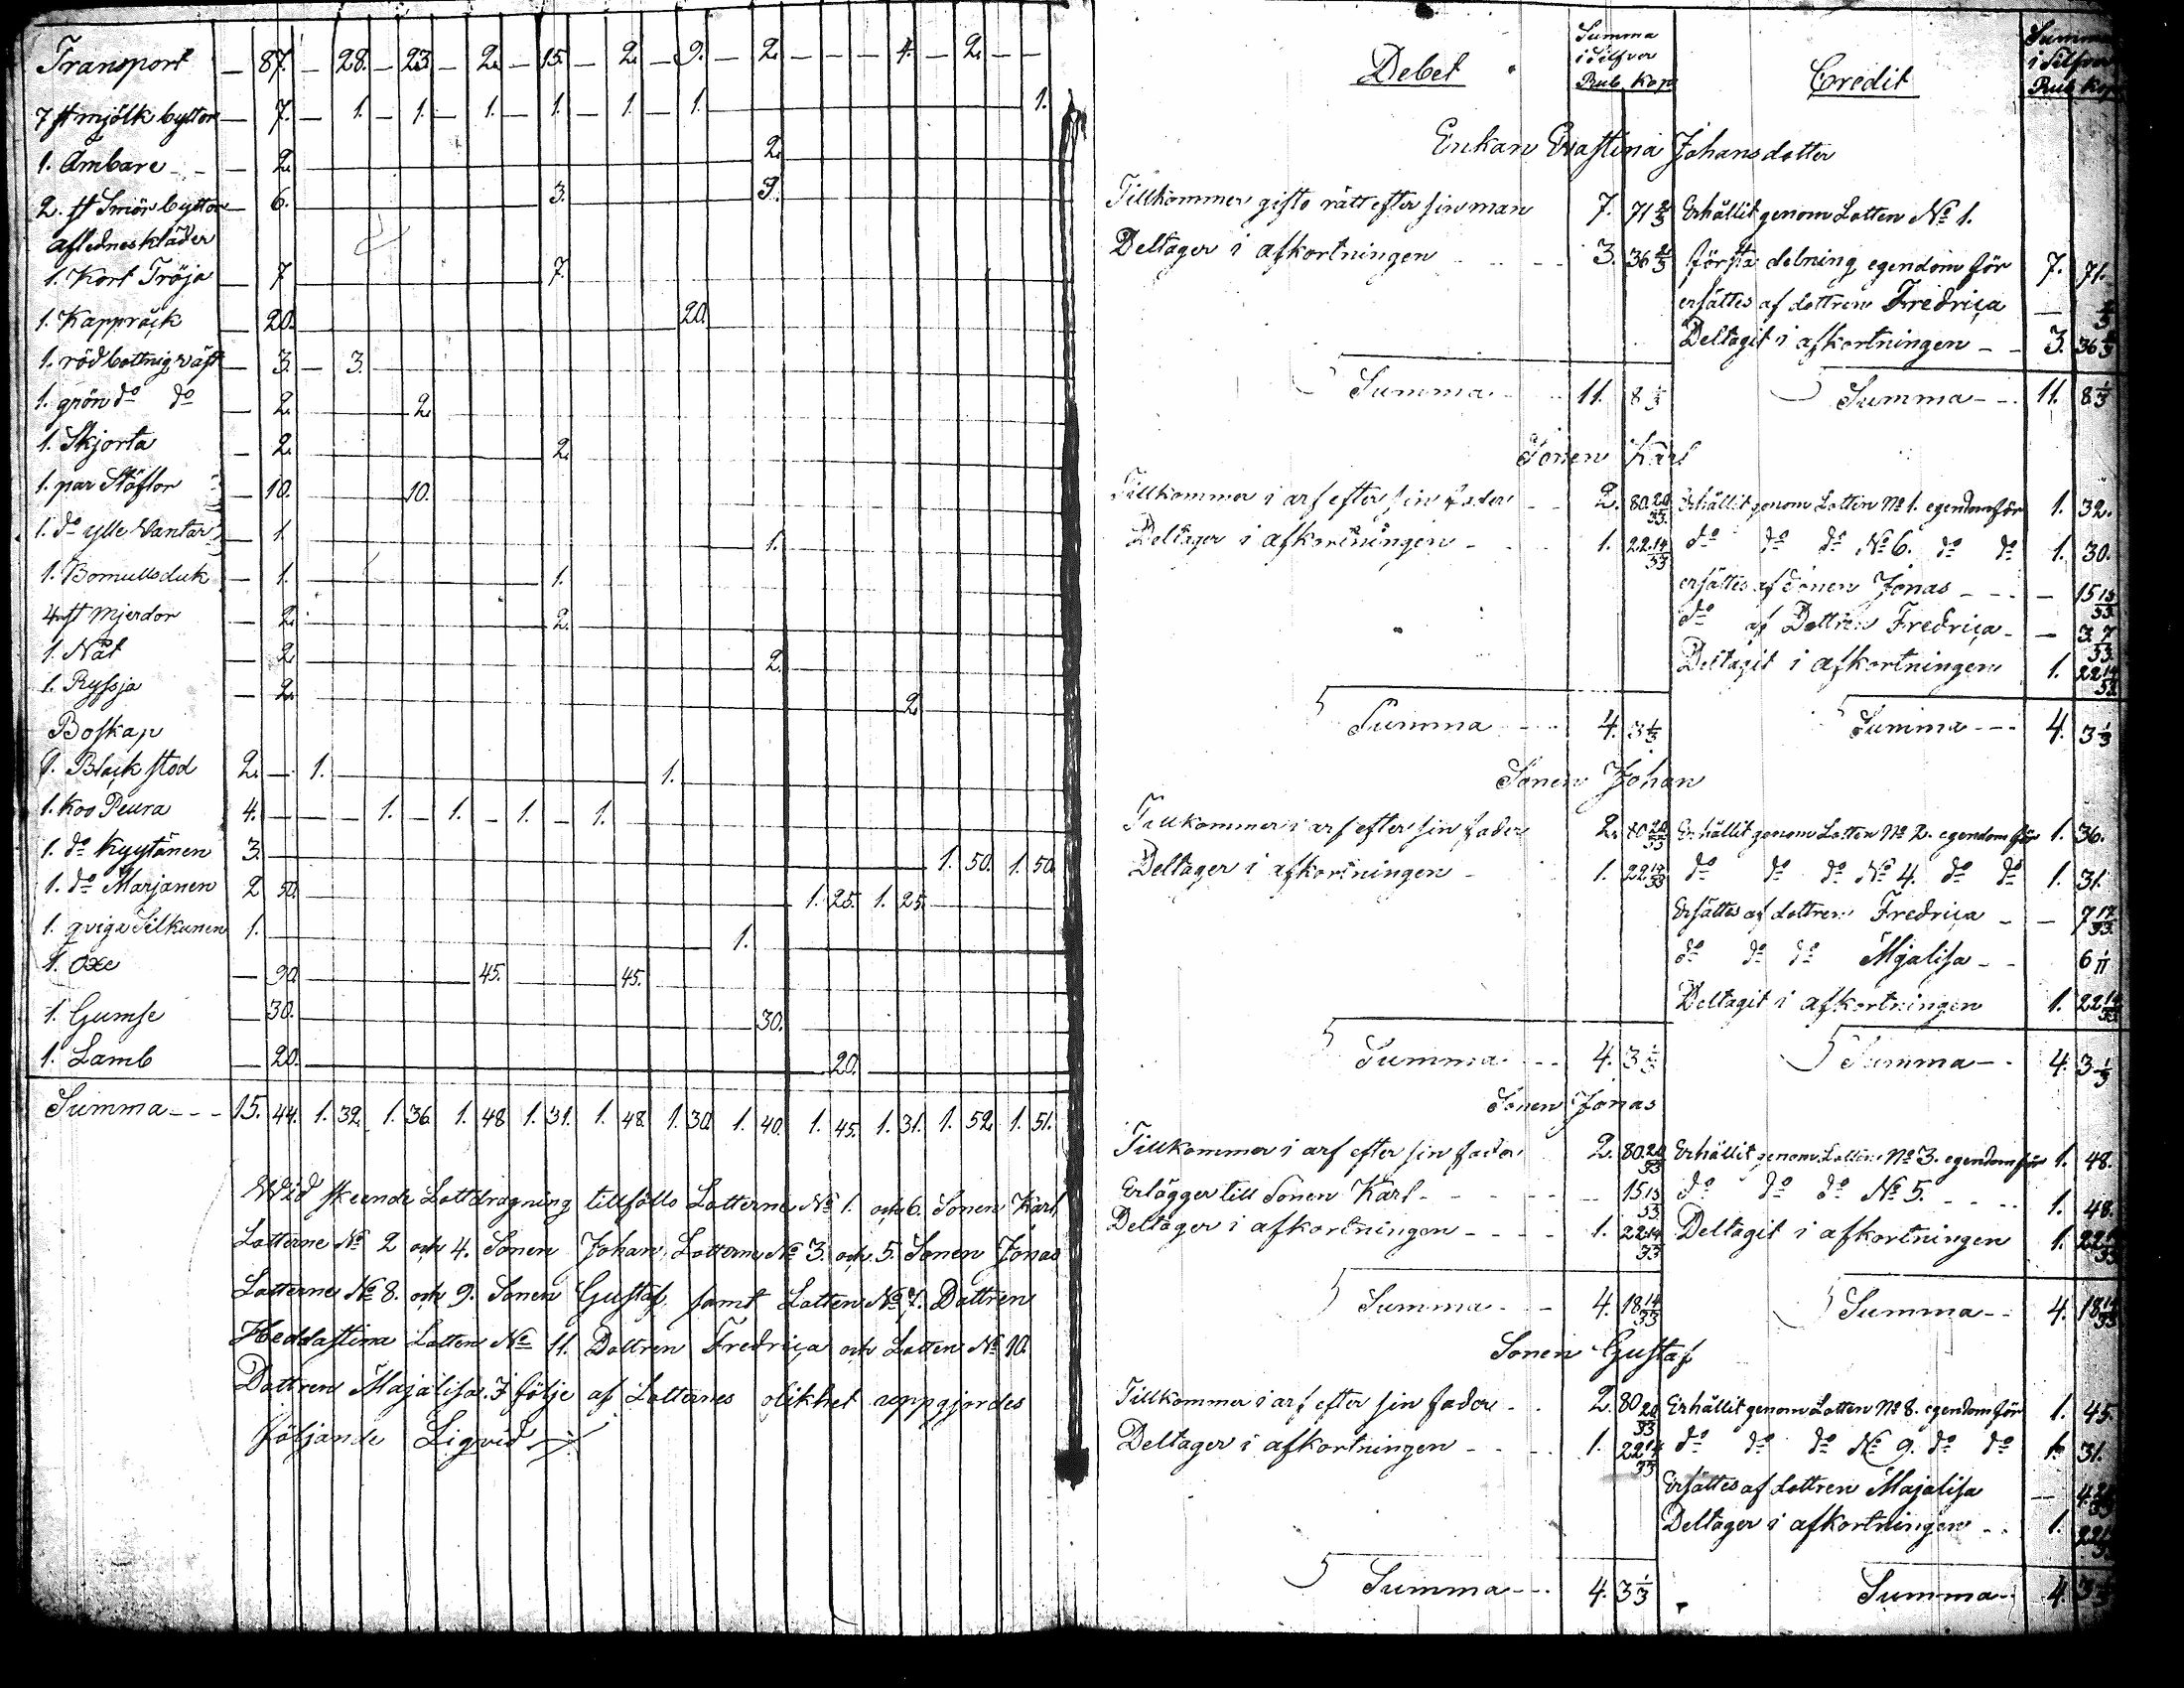 Transport — 87. — 28. — 23 — 2. — 15. — 2. — 9. — 2. — — — 4. — 2. — —
7 st mjölk byttor — 7. — 1. — 1. — 1. — 1. — 1. — 1. — 1.
1. Ämbare — 2. — 2.
2. st Smör byttor — 6. — 3. — 3.
aflednes kläder
1. Kort Tröja — 7 — 7.
1. Kappråck — 20. — 20.
1. röd bottnig väst — 3. — 3.
1. grön do do — 2. — 2.
1. Skjorta — 2. — 2.
1. par Stöflor — 10. — 10.
1. do ylle Vantar — 1. — 1.
1. Bomullsduk — 1. — 1.
4 st Mjerdor — 2. — 2.
1. Nät — 2. — 2.
1. Ryssja — 2. — 2.
Boskap
1. Black stod 2. — 1. — 1.
1. Koo Peura 4. — — — 1. — 1. — 1. — 1.
1. do Kyytänen 3. — 1. 50. 1. 50.
1. do Marjanen 2 50. — 1. 25. 1. 25.
1. qviga Silkunen 1. — 1.
1. Oxe — 90. — 45. — 45.
1. Gumse — 30. — 30.
1. Lamb — 20. — 20.
Summa - - - 15. 44. 1. 32. 1. 36. 1. 48. 1. 31. 1. 48. 1. 30. 1. 40. 1. 45. 1. 31. 1. 52. 1. 51.
Wid skeende Lottdragning tillföllo Lotterne No 1. och 6. Sonen Karl
Lotterne No 2 och 4. Sonen Johan, Lotterne No 3. och 5. Sonen Jonas
Lotterne No 8. och 9. Sonen Gustaf, samt Lotten No 7. Dottren
Heddastina Lotten No 11. Dottren Fredrica och Lotten No 10.
Dottren Majalisa. I följe af Lotternes olikhet uppgjordes
följande Liqvid
Debet Summa i Silfver Rub Kop Credit Summa i Silfver Rub Kop
Enkan Johansdotter
Tillkommer gifto rätt efter sin man 7. 71 2/3 Erhållit genom Lotten No 1.
Deltager i afkortningen 3. 36 2/3 första delning egendom för 7. 71.
ersättes af dottren Fredrica — 2/3
Deltagit i afkortningen — 3. 36 2/3
Summa 11. 8 1/3 Summa 11. 8 1/3
Sonen Karl
Tillkommer i arf efter sin fader 2. 80 20/33 Erhållit genom Lotten No 1. egendom för 1. 32.
Deltager i afkortningen 1. 22 14/33 do do do No 6. do do 1. 30.
ersättes af Sonen Jonas — 15 13/33
do af Dottren Fredrica — 3 7/33
Deltagit i afkortningen 1. 22 14/33
Summa 4. 3 1/3 Summa 4. 3 1/3
Sonen Johan
Tillkommer i arf efter sin fader 2. 80 20/33 Erhållit genom Lotten No 2. egendom för 1. 36.
Deltager i afkortningen 1. 22 14/33 do do do No 4. do do 1. 31.
Ersättes af dottren Fredrica — 7 17/33
do do do Majalisa 6 1/11
Deltagit i afkortningen 1. 22 14/33
Summa 4. 3 1/3 Summa 4. 3 1/3
Sonen Jonas
Tillkommer i arf efter sin fader 2. 80 20/33 Erhållit genom Lotten No 3. egendom för 1. 48.
Erlägger till Sonen Karl — 15 13/33 do do do No 5. 1. 48.
Deltager i afkortningen 1. 22 14/33 Deltagit i afkortningen 1. 22 14/33
Summa 4. 18 14/33 Summa 4. 18 14/33
Sonen Gustaf
Tillkommer i arf efter sin fader 2. 80 20/33 Erhållit genom Lotten No 8. egendom för 1. 45.
Deltager i afkortningen 1. 22 14/33 do do do No 9. do do 1. 31.
Ersättes af dottren Majalisa
Deltager i afkortningen 1.
Summa 4. 3 1/3 Summa 4. 3 1/3